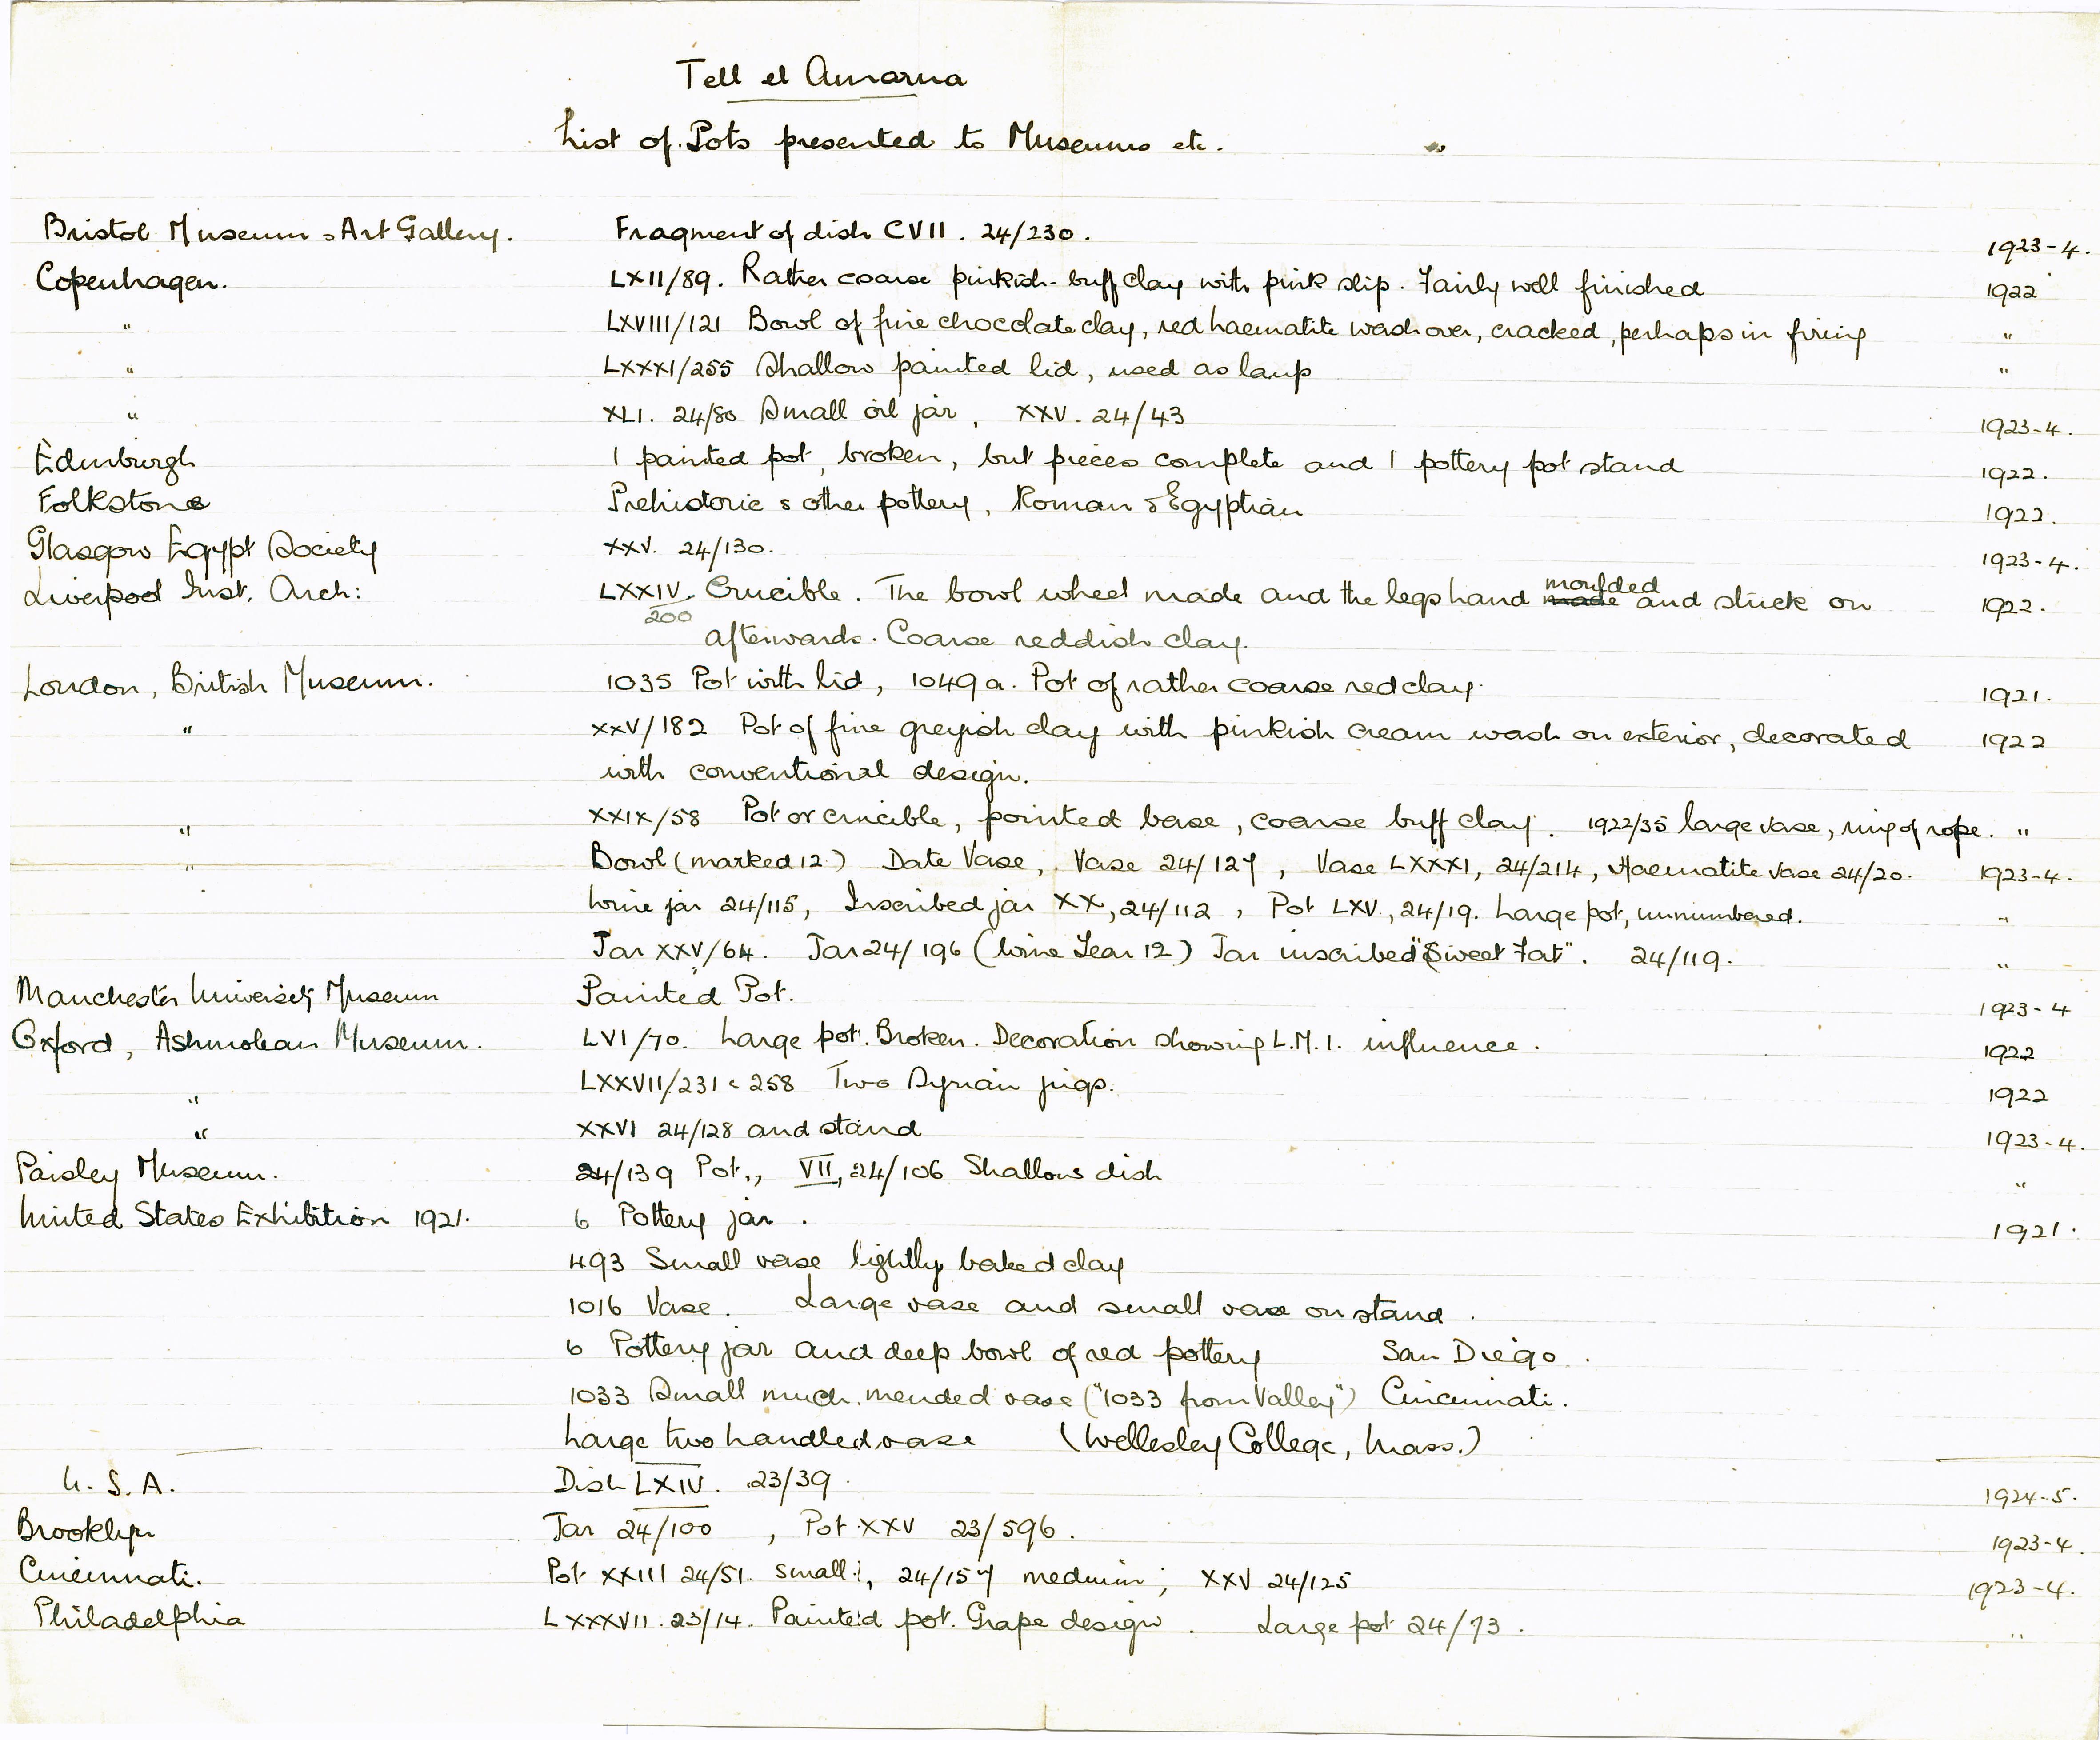 Tell el Amarna
List of Pots presented to Museums etc.
Bristol Museum & Art Gallery. Fragment of dish CVII. 24/230. 1923-4.
Copenhagen. LXII/89. Rather coarse pinkish-buff clay with pink slip. Fairly well finished 1922
" LXVIII/121 Bowl of fine chocolate clay, red haematite wash over, cracked, perhaps in firing "
" LXXXI/255 Shallow painted lid, used as lamp "
" XLI. 24/80 Small oil jar, XXV. 24/43 1923-4.
Edinburgh 1 painted pot, broken, but pieces complete and 1 pottery pot stand 1922.
Folkstone Prehistoric & other pottery, Roman & Egyptian 1922.
Glasgow Egypt Society XXV. 24/130. 1923-4.
Liverpool Inst. Arch: LXXIV/200 Crucible. The bowl wheel made and the legs hand made moulded and stuck on 1922.
afterwards. Coarse reddish clay.
London, British Museum. 1035 Pot with lid, 1049a. Pot of rather coarse red clay. 1921.
" XXV/182 Pot of fine greyish clay with pinkish cream wash on exterior, decorated 1922
with conventional design.
" XXIX/58 Pot or crucible, pointed base, coarse buff clay. 1922/35 large vase, ring of rope. "
" Bowl (marked 12) Date Vase, Vase 24/127, Vase LXXXI, 24/214, Haematite Vase 24/20. 1923-4.
Wine jar 24/115, Inscribed jar XX, 24/112, Pot LXV, 24/19. Large pot, unnumbered. "
Jar XXV/64. Jar 24/196 (Wine Year 12) Jar inscribed "Sweet Fat". 24/119. "
Manchester University Museum Painted Pot. 1923-4
Oxford, Ashmolean Museum. LVI/70. Large pot. Broken. Decoration showing L.M.I. influence. 1922
" LXXVII/231 & 258 Two Syrian jugs. 1922
" XXVI 24/128 and stand 1923-4.
Paisley Museum. 24/139 Pot., VII, 24/106 Shallow dish "
United States Exhibition 1921. 6 Pottery jar. 1921.
493 Small vase lightly baked clay
1016 Vase. Large vase and small vase on stand.
6 Pottery jar and deep bowl of red pottery San Diego.
1033 Small much mended vase ("1033 from Valley") Cincinnati.
Large two handled vase (Wellesley College, Mass.)
U.S.A. Dish LXIV. 23/39. 1924-5.
Brooklyn Jar 24/100, Pot XXV 23/596. 1923-4.
Cincinnati. Pot XXIII 24/51. small; 24/157 medium; XXV 24/125 1923-4.
Philadelphia LXXXVII. 23/14. Painted pot. Grape design. Large pot 24/73. "